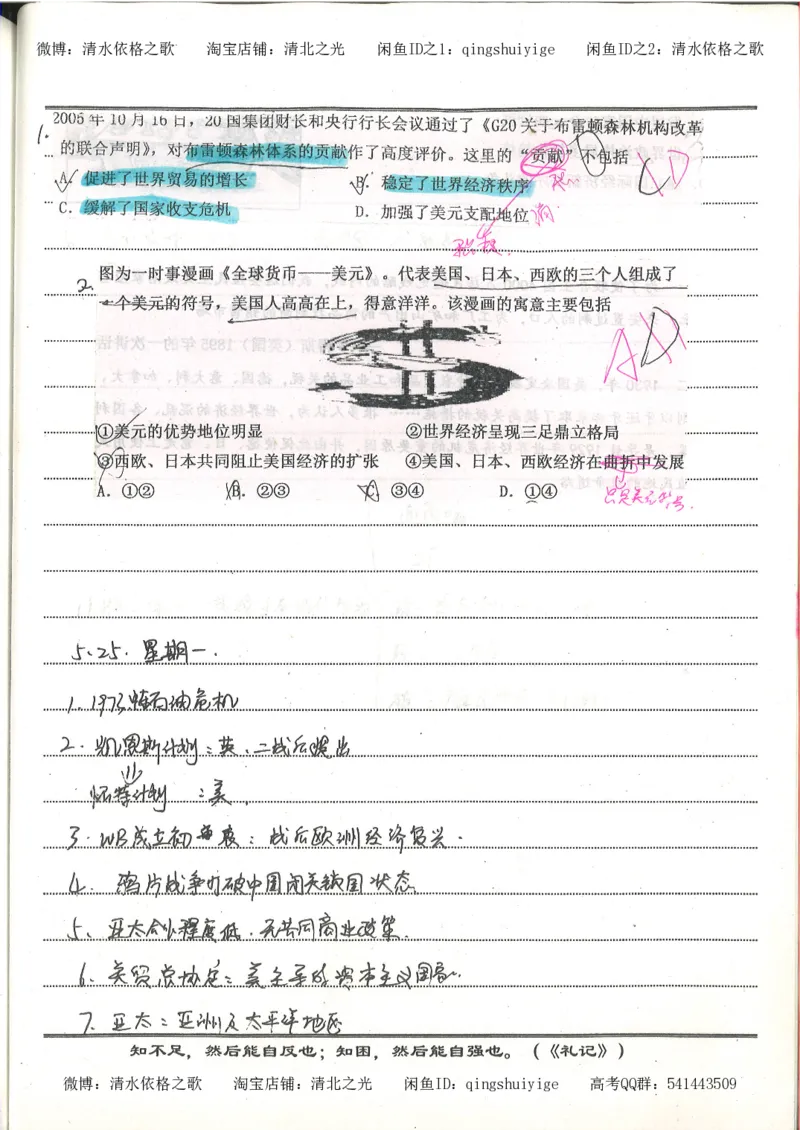 微博：清水依格之歌 淘宝店铺：清北之光 闲鱼ID之1：qingshuiyige 闲鱼ID之2：清水依格之歌
1. 2005年10月16日，20国集团财长和央行行长会议通过了《G20关于布雷顿森林机构改革
的联合声明》，对布雷顿森林体系的贡献作了高度评价。这里的“贡献”不包括 D
A. 促进了世界贸易的增长 B. 稳定了世界经济秩序
C. 缓解了国家收支危机 D. 加强了美元支配地位 消
积极.
2. 图为一时事漫画《全球货币——美元》。代表美国、日本、西欧的三个人组成了
一个美元的符号，美国人高高在上，得意洋洋。该漫画的寓意主要包括
AD
①美元的优势地位明显 ②世界经济呈现三足鼎立格局
③西欧、日本共同阻止美国经济的扩张 ④美国、日本、西欧经济在曲折中发展
A. ①② B. ②③ C. ③④ D. ①④
只是美元符号.
5.25. 星期一.
1. 1973 石油危机
2. 凯恩斯计划：英、二战后提出
怀特计划：美.
3. WB成立初衷：战后欧洲经济复兴.
4. 鸦片战争打破中国闭关锁国状态
5. 亚太会议程度低.无共同商业政策.
6. 关贸总协定：美主导的资本主义国家.
7. 亚太：亚洲及太平洋地区
知不足，然后能自反也；知困，然后能自强也。（《礼记》）
微博：清水依格之歌 淘宝店铺：清北之光 闲鱼ID：qingshuiyige 高考QQ群：541443509